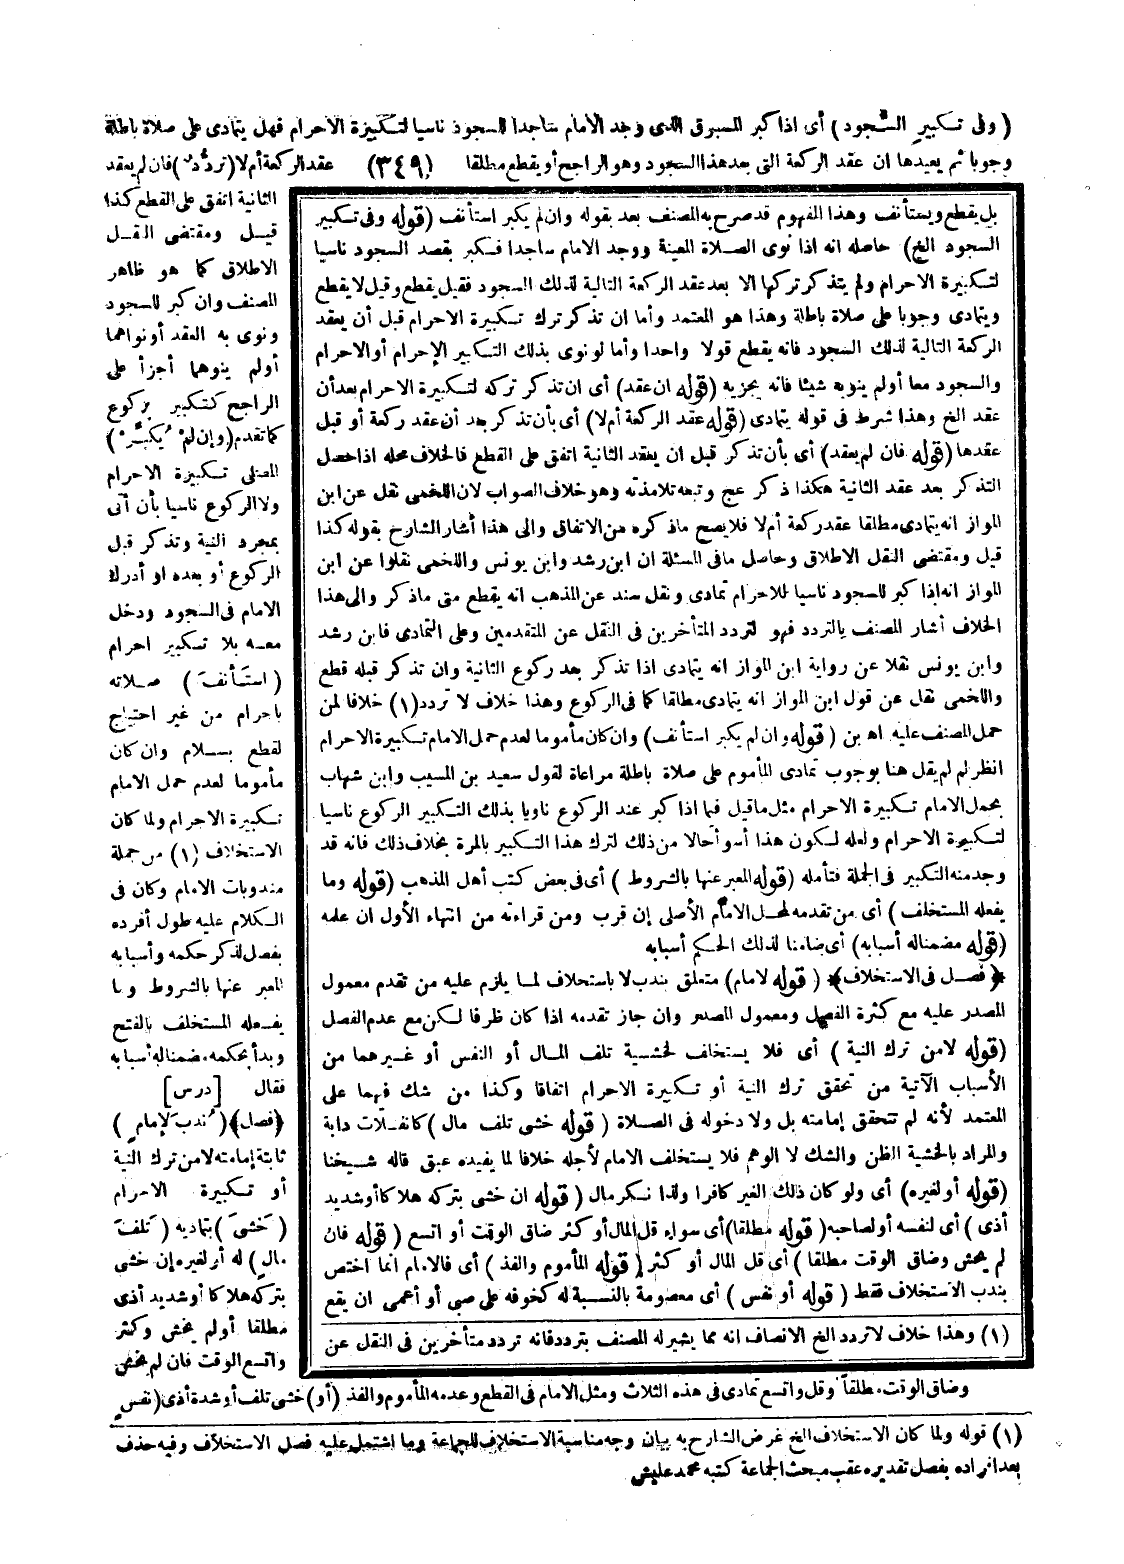 (وفى تكبير السجود) أى اذا كبر المسبوق الذى وجد الامام ساجدا للسجود ناسيا لتكبيرة الاحرام فهل يتمادى على صلاة باطلة
وجوبا ثم يعيدها ان عقد الركعة التى بعد هذا السجود وهو الراجح أو يقطع مطلقا (٣٤٩) عقد الركعة أم لا (تردد) فان لم يعقد
الثانية اتفق على القطع كذا
قيل ومقتضى النقل
الاطلاق كما هو ظاهر
المصنف وان كبر للسجود
ونوى به العقد أو نواهما
أو لم ينوهما أجزأ على
الراجح كتكبير بركوع
كما تقدم (وإن لم يكبر)
المصلى تكبيرة الاحرام
ولا الركوع ناسيا بأن أتى
بمجرد النية وتذكر قبل
الركوع أو بعده او أدرك
الامام فى السجود ودخل
معه بلا تكبير احرام
(استأنف) صلاته
باحرام من غير احتياج
لقطع بسلام وان كان
مأموما لعدم حمل الامام
تكبيرة الاحرام ولما كان
الاستخلاف (١) من جملة
مندوبات الامام وكان فى
الكلام عليه طول أفرده
بفصل لذكر حكمه وأسبابه
المعبر عنها بالشروط وما
يفعله المستخلف بالفتح
وبدأ بحكمه مضمناله أسبابه
فقال [درس]
﴿فصل﴾ (ندب لإمام)
ثابتة إمامته لا من ترك النية
أو تكبيرة الاحرام
(خشى) بتماديه (تلف
مال) له أو لغيره إن خشى
بتركه هلاكا أو شديد أذى
مطلقا أو لم يخش وكثر
واتسع الوقت فان لم يخش
بل يقطع ويستأنف وهذا المفهوم قد صرح به المصنف بعد بقوله وان لم يكبر استأنف (قوله وفى تكبير
السجود الخ) حاصله انه اذا نوى الصلاة المعينة ووجد الامام ساجدا فكبر بقصد السجود ناسيا
لتكبيرة الاحرام ولم يتذكر تركها الا بعد عقد الركعة التالية لذلك السجود فقيل يقطع وقيل لا يقطع
ويتمادى وجوبا على صلاة باطلة وهذا هو المعتمد وأما ان تذكر ترك تكبيرة الاحرام قبل أن يعقد
الركعة التالية لذلك السجود فانه يقطع قولا واحدا وأما لو نوى بذلك التكبير الإحرام أو الاحرام
والسجود معا أو لم ينو به شيئا فانه يجزيه (قوله ان عقد) أى ان تذكر تركه لتكبيرة الاحرام بعد أن
عقد الخ وهذا شرط فى قوله يتمادى (قوله عقد الركعة أم لا) أى بأن تذكر بعد أن عقد ركعة أو قبل
عقدها (قوله فان لم يعقد) أى بأن تذكر قبل ان يعقد الثانية اتفق على القطع فالخلاف محله اذا حصل
التذكر بعد عقد الثانية هكذا ذكر عج وتبعه تلامذته وهو خلاف الصواب لان اللخمى نقل عن ابن
المواز انه يتمادى مطلقا عقد ركعة أم لا فلا يصح ما ذكره من الاتفاق والى هذا أشار الشارح بقوله كذا
قيل ومقتضى النقل الاطلاق وحاصل مافى المسئلة ان ابن رشد وابن يونس واللخمى نقلوا عن ابن
المواز انه اذا كبر للسجود ناسيا للاحرام تمادى ونقل سند عن المذهب انه يقطع متى ما ذكر والى هذا
الخلاف أشار المصنف بالتردد فهو لتردد المتأخرين فى النقل عن المتقدمين وعلى التمادى فابن رشد
وابن يونس نقلا عن رواية ابن المواز انه يتمادى اذا تذكر بعد ركوع الثانية وان تذكر قبله قطع
واللخمى نقل عن قول ابن المواز انه يتمادى مطلقا كما فى الركوع وهذا خلاف لا تردد (١) خلافا لمن
حمل المصنف عليه اه بن (قوله وان لم يكبر استأنف) وان كان مأموما لعدم حمل الامام تكبيرة الاحرام
انظر لم لم يقل هنا بوجوب تمادى المأموم على صلاة باطلة مراعاة لقول سعيد بن المسيب وابن شهاب
بحمل الامام تكبيرة الاحرام مثل ما قيل فيما اذا كبر عند الركوع ناويا بذلك التكبير الركوع ناسيا
لتكبيرة الاحرام ولعله لكون هذا أسوأ حالا من ذلك لترك هذا التكبير بالمرة بخلاف ذلك فانه قد
وجد منه التكبير فى الجملة فتأمله (قوله المعبر عنها بالشروط) أى فى بعض كتب أهل المذهب (قوله وما
يفعله المستخلف) أى من تقدمه لمحل الامام الأصلى إن قرب ومن قراءته من انتهاء الأول ان علمه
(قوله مضمناله أسبابه) أى ضامنا لذلك الحكم أسبابه
﴿فصل فى الاستخلاف﴾ (قوله لامام) متعلق بندب لا باستخلاف لما يلزم عليه من تقدم معمول
المصدر عليه مع كثرة الفصل ومعمول المصدر وان جاز تقدمه اذا كان ظرفا لكن مع عدم الفصل
(قوله لا من ترك النية) أى فلا يستخلف لخشية تلف المال أو النفس أو غيرهما من
الأسباب الآتية من تحقق ترك النية أو تكبيرة الاحرام اتفاقا وكذا من شك فيهما على
المعتمد لأنه لم تتحقق إمامته بل ولا دخوله فى الصلاة (قوله خشى تلف مال) كانفلات دابة
والمراد بالخشية الظن والشك لا الوهم فلا يستخلف الامام لأجله خلافا لما يفيده عبق قاله شيخنا
(قوله أو لغيره) أى ولو كان ذلك الغير كافرا ولذا نكر مال (قوله ان خشى بتركه هلاكا أو شديد
أذى) أى لنفسه أو لصاحبه (قوله مطلقا) أى سواء قل المال أو كثر ضاق الوقت أو اتسع (قوله فان
لم يخش وضاق الوقت مطلقا) أى قل المال أو كثر (قوله المأموم والفذ) أى فالامام انما اختص
بندب الاستخلاف فقط (قوله أو نفس) أى معصومة بالنسبة له كخوفه على صبى أو أعمى ان يقع
(١) وهذا خلاف لا تردد الخ الانصاف انه مما يشير له المصنف بتردد فانه تردد متأخرين فى النقل عن
وضاق الوقت مطلقا وقل واتسع تمادى فى هذه الثلاث ومثل الامام فى القطع وعدمه المأموم والفذ (أو) خشى تلف أو شدة أذى (نفس
(١) قوله ولما كان الاستخلاف الخ غرض الشارح به بيان وجه مناسبة الاستخلاف للجماعة وما اشتمل عليه فصل الاستخلاف وفيه حذف
بعد افراده بفصل تقديره عقب مبحث الجماعة كتبه محمد عليش